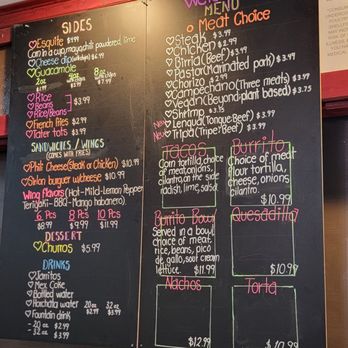 SIDES
Esquite $4.99
Corn in a cup, mayo, chili powdered, lime
Cheese dip
Guacamole
2oz 4oz 8oz
Rice
Beans
Rice/Beans $3.99
French fries $2.99
Tater tots $3.99
SANDWICHES / WINGS
(COMES WITH FRIES)
Phili Cheese (Steak or Chicken) $10.99
Sirloin burger w/cheese $10.99
Wing Flavors (Hot - Mild - Lemon Pepper
Teriyaki - BBQ - Mango habanero)
6 Pcs 8 Pcs 10 Pcs
$8.99 $9.99 $11.99
DESSERT
Churros $5.99
DRINKS
Jarritos
Mex Coke
Bottled water
Horchata water 20 oz 32 oz
$2.99 $3.99
Fountain drink
- 20 oz $2.49
- 32 oz $2.99
MENU
Meat Choice
Steak
Chicken
Birria (Beef) $3.75
Pastor (Marinated pork)
Chorizo $3.75
Campechano (Three meats)
Vegan (Beyond-plant based) $3.75
Shrimp $3.75
Lengua (Tongue Beef) $3.99
Tripa (Tripe Beef) $3.99
Tacos
Corn tortilla, choice
of meat, onions,
cilantro, on the side
radish, lime, salsa.
Burrito
Choice of meat
flour tortilla,
cheese, onions
cilantro.
$10.99
Burrito Bowl
Served in a bowl
choice of meat,
rice, beans, pico
de gallo, sour cream
lettuce. $11.99
Quesadilla
$10.99
Nachos
$12.99
Torta
$10.99